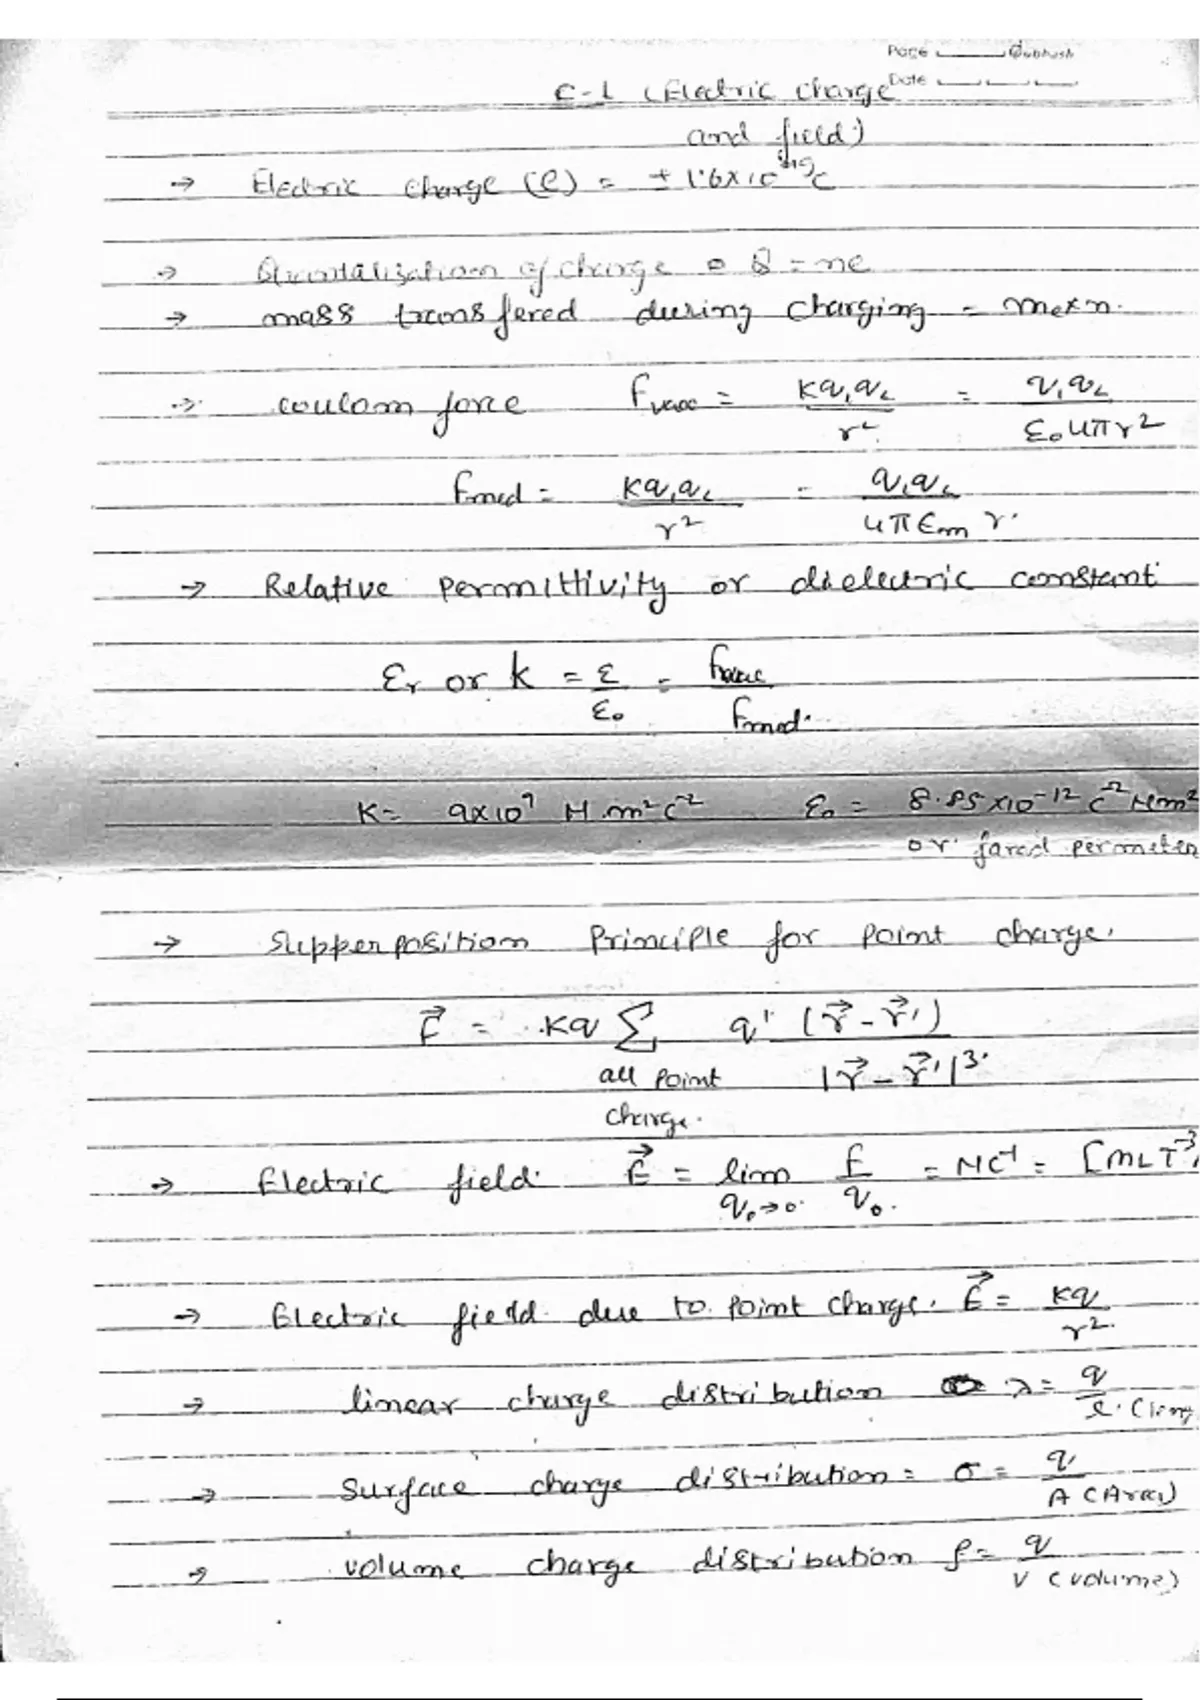 Page Subhash
C-1 (Electric charge Date
and field)
→ Electric charge (e) = ± 1.6×10⁻¹⁹C
→ Quantalisation of charge Q = ne
→ mass transfered during charging = me×n.
→ coulom force Fvacc = kq₁q₂/r² = q₁q₂/ε₀4πr²
Fmed = kq₁q₂/r² = q₁q₂/4πεm r.
→ Relative permittivity or dielectric constant
εr or k = ε/ε₀ = Fvacc/Fmed.
K = 9×10⁹ N.m²c⁻² ε₀ = 8.85×10⁻¹² C⁻² Nm²
or farad permeter
→ Supperposition Principle for point charge.
F⃗ = kq Σ q' (r⃗ - r⃗')/|r⃗ - r⃗'|³.
all point
charge.
→ Electric field. E⃗ = lim q₀→0. F/q₀. = NC⁻¹ = [MLT⁻³
→ Electric field due to point charge. E⃗ = kq/r².
→ linear charge distribution λ = q/l.
→ Surface charge distribution = σ = q/A (Area)
→ volume charge distribution ρ = q/V (volume)